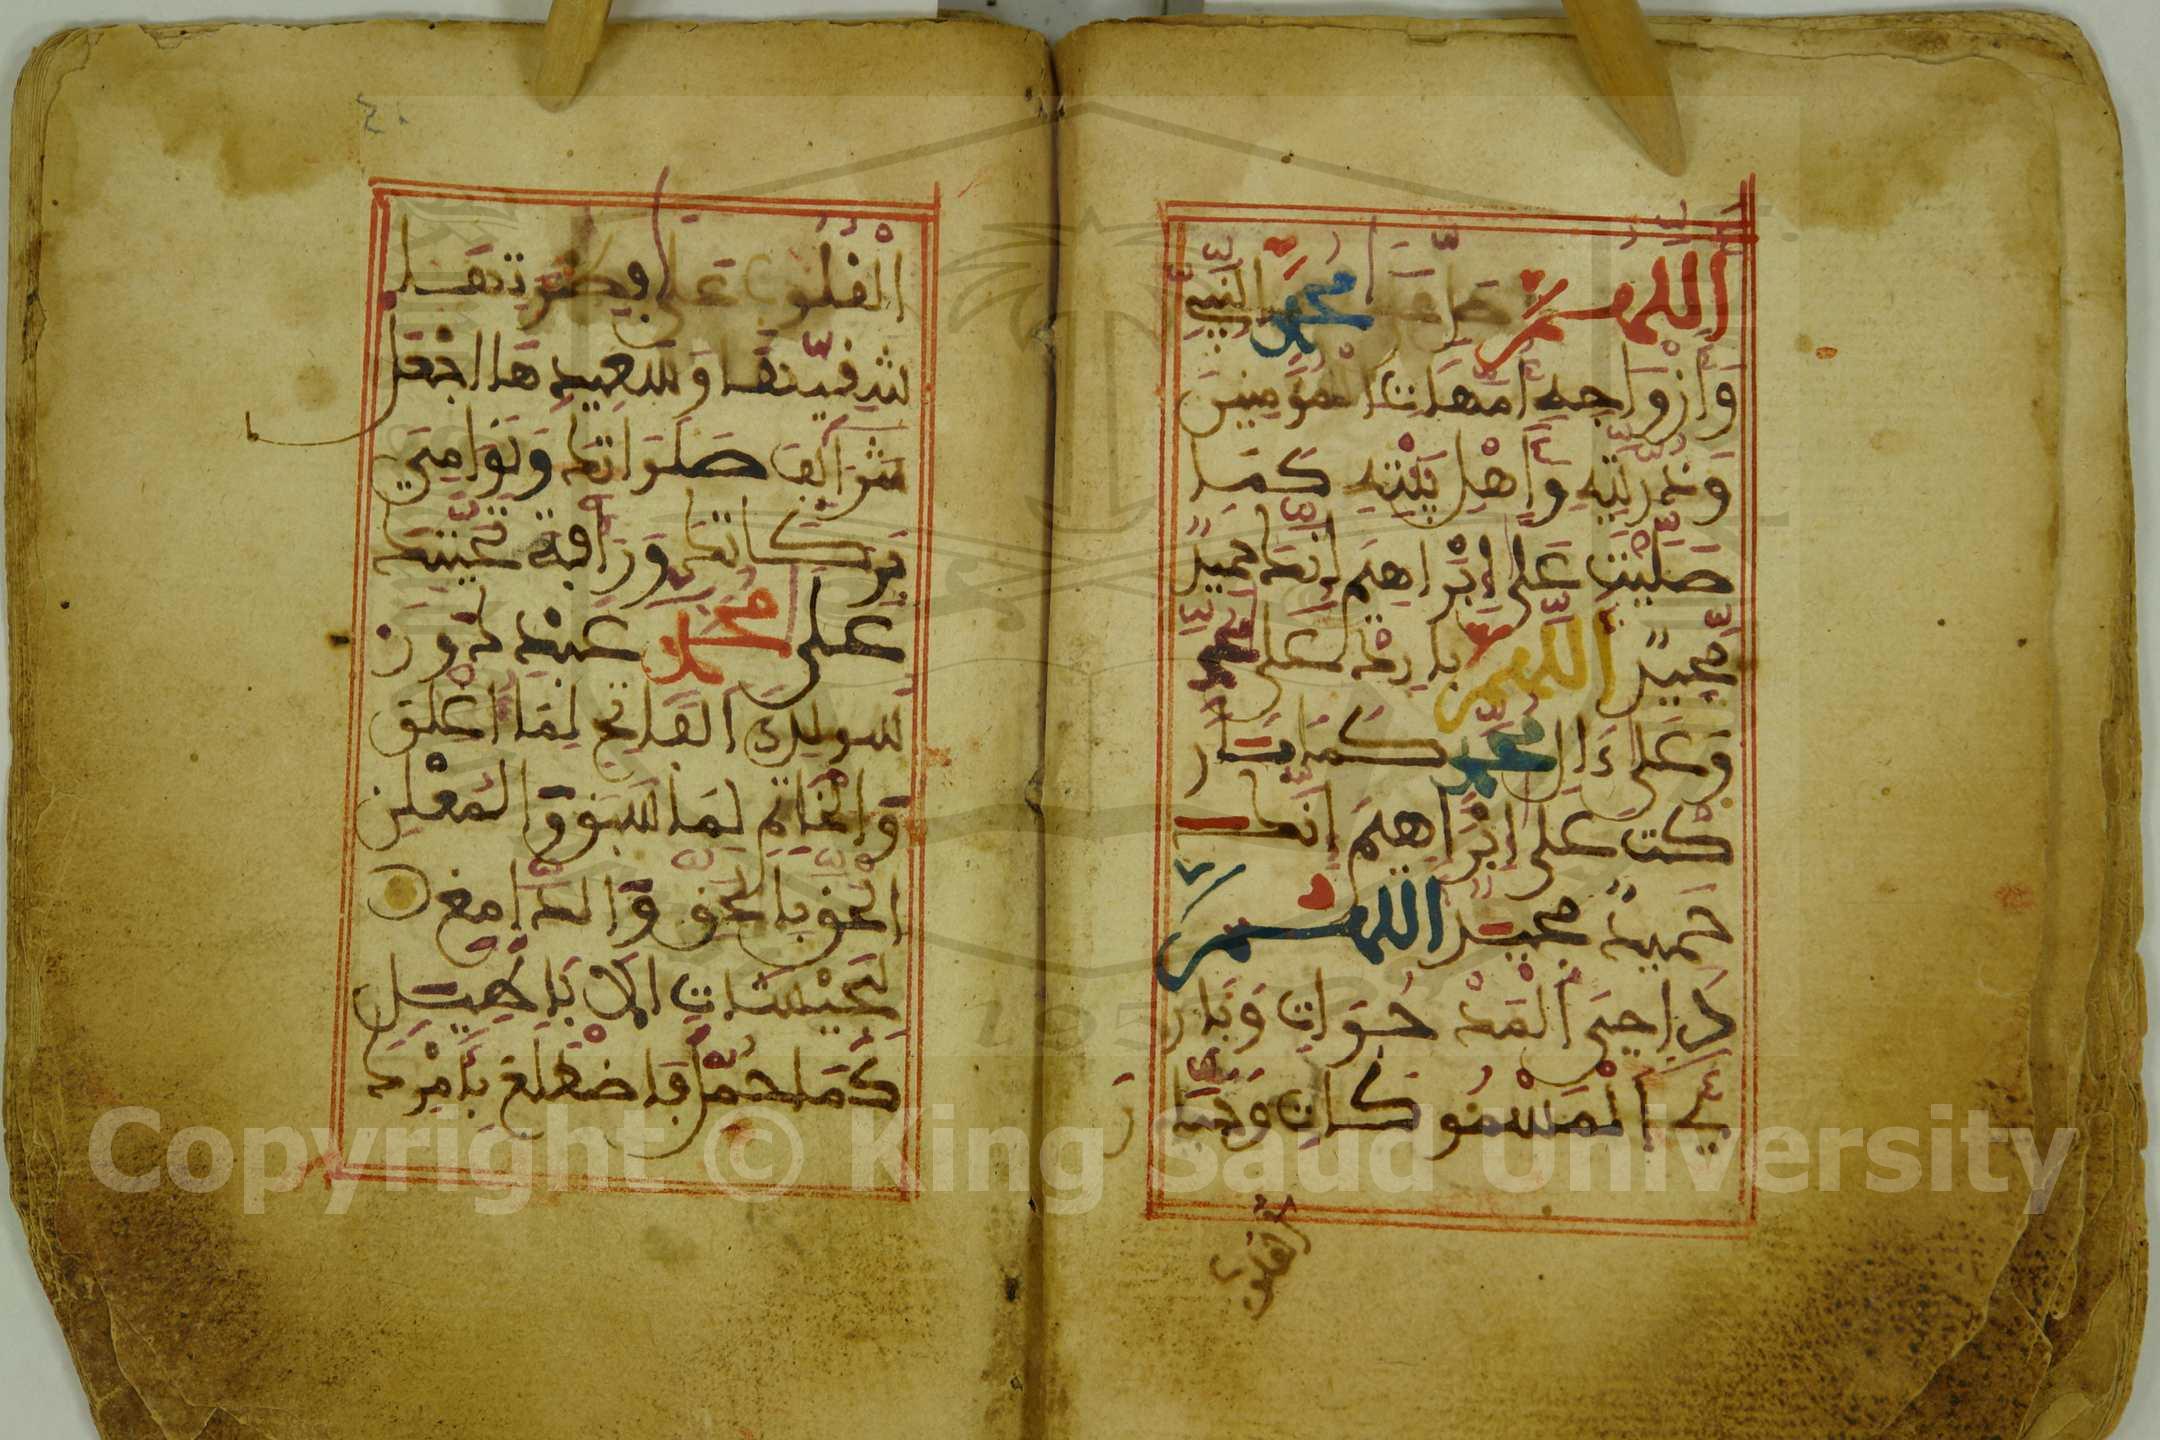 اللهم صل على محمد النبيء
وأزواجه أمهات المؤمنين
وذريته وأهل بيته كما
صليت على إبراهيم إنك حميد
مجيد اللهم بارك على محمد
وعلى ءال محمد كما بار
كت على إبراهيم إنك
حميد مجيد اللهم
داحي المدحوات وبار
ئ المسموكات وجبار
القلوب
القلوب على فطرتها
شقيها وسعيدها اجعل
شرائف صلواتك ونوامي
بركاتك ورأفة تحيتك
على محمد عبدك و
رسولك الفاتح لما أغلق
والخاتم لما سبق والمعلن
الحق بالحق والدامغ
لجيشات الاباطيل
كما حمل فاضطلع بأمرك
Copyright © King Saud University